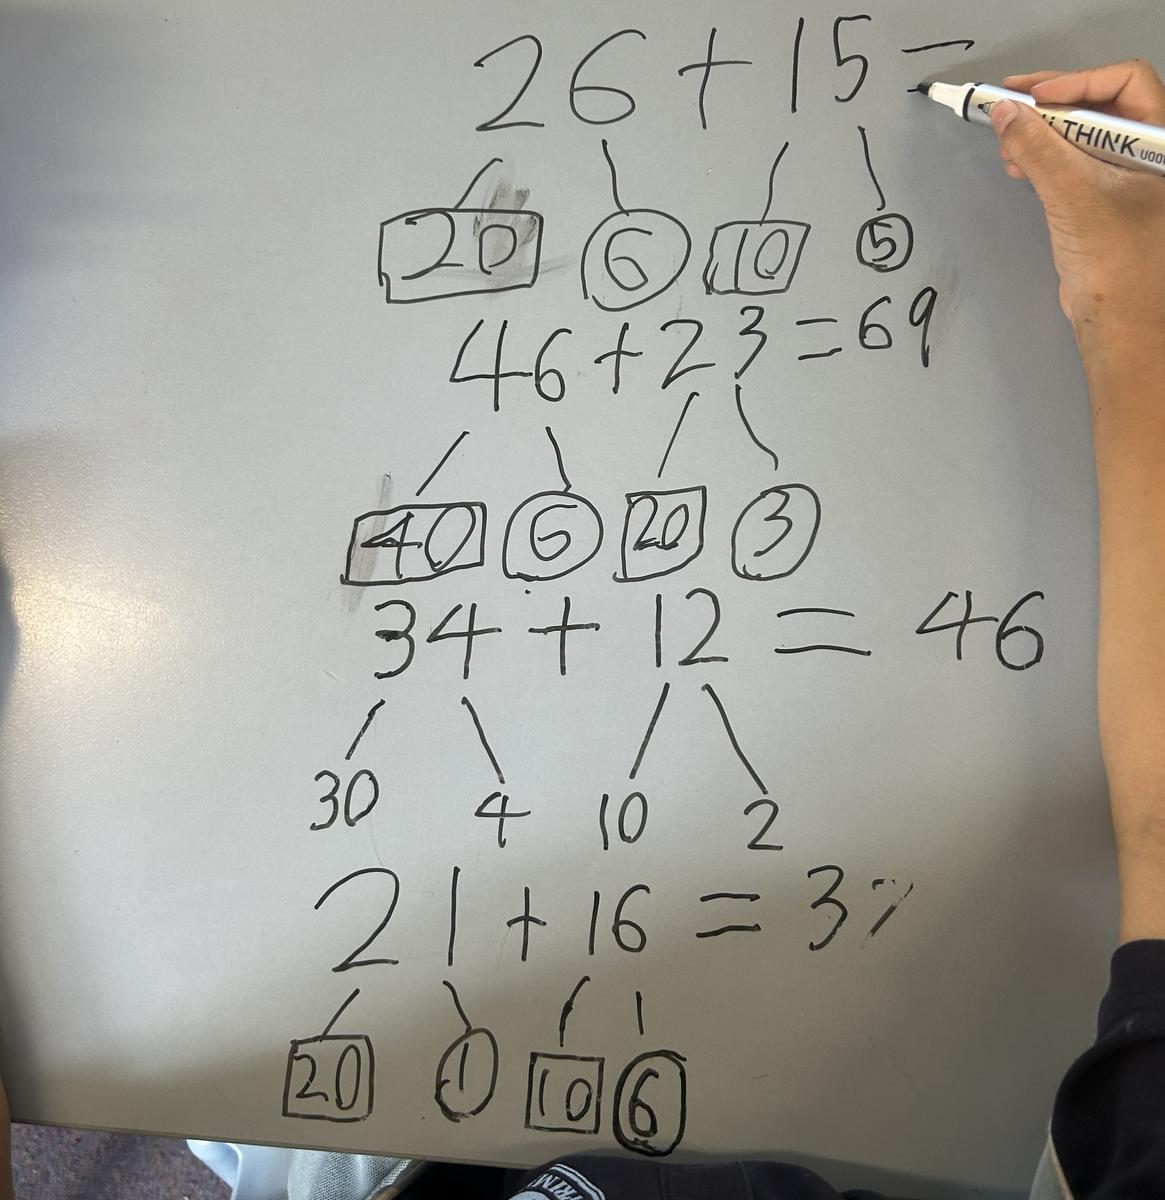 26 + 15 =
THINK
20 6 10 5
46 + 23 = 69
40 6 20 3
34 + 12 = 46
30 4 10 2
21 + 16 = 37
20 1 10 6